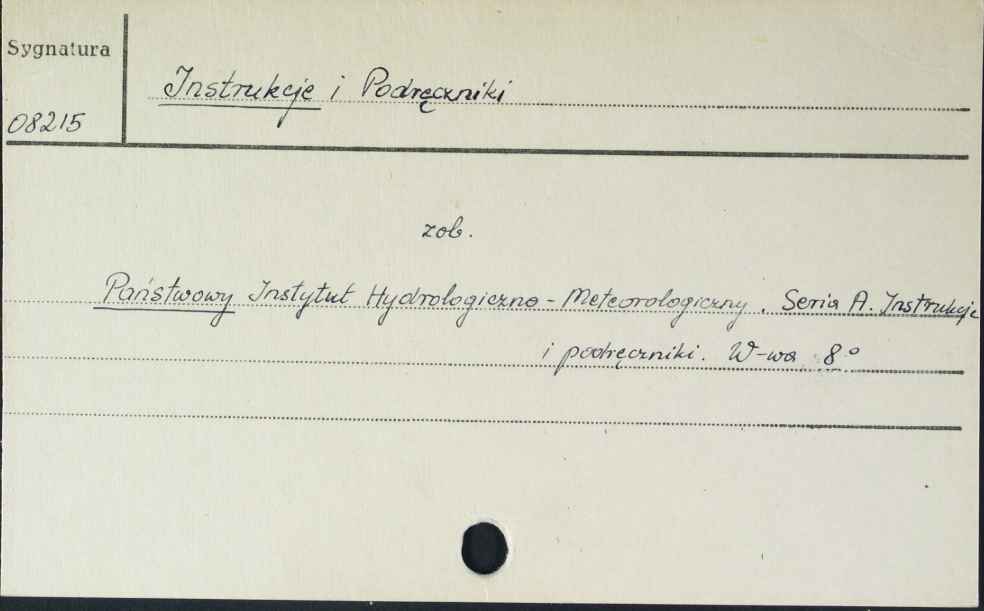 Sygnatura
Instrukcje i Podręczniki
08215
zob.
Państwowy Instytut Hydrologiczno-Meteorologiczny. Seria A. Instrukcje
i podręczniki. W-wa 8°